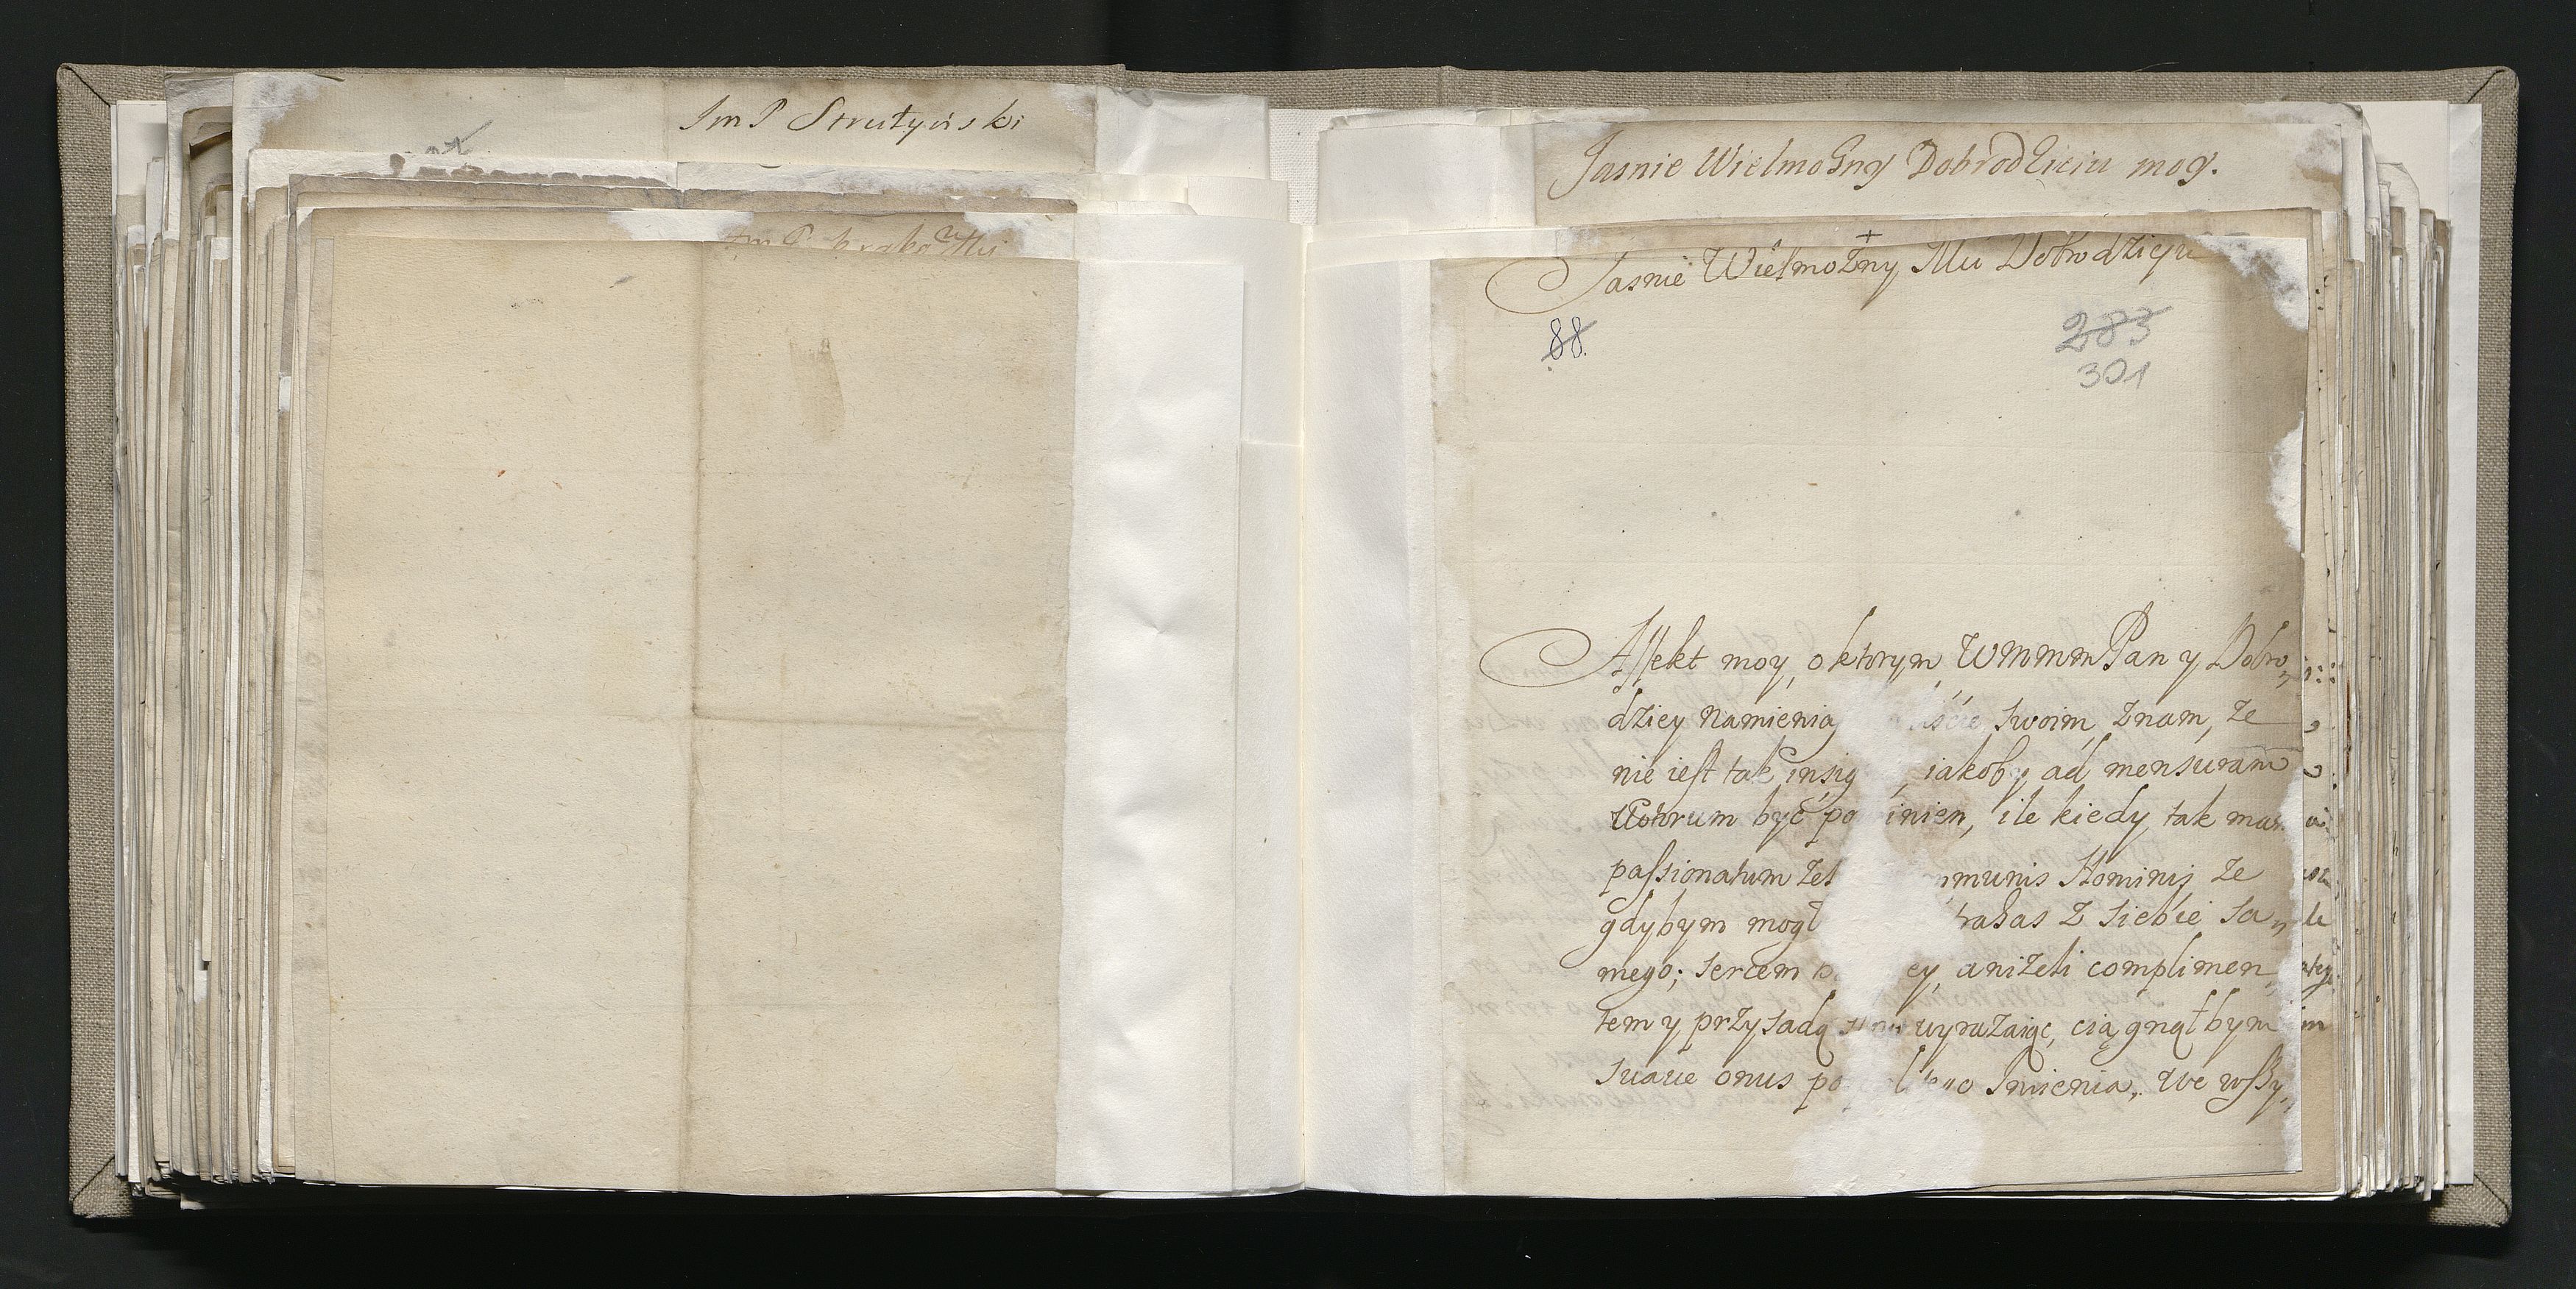 Im P Strutyński
Jasnie Wielmożny Dobrodzieiu moy.
Jasnie Wielmożny Mu Dobrodzieju
88.
283
301
Affekt moy, o ktorym WMMM Pan y Dobro,
dziey namienia swoim, znam, ze
nie iest tak insig iakoby ad mensuram
być po inien, ile kiedy tak mam
passionatum zel mmunis Hominis ze
gdybym mogl z siebie sa,
mego; sercem ey, aniżeli complimen,
tem y przysadą wyrażaiąc, ciągnąłbym
suave onus po Imienia, we wszy,